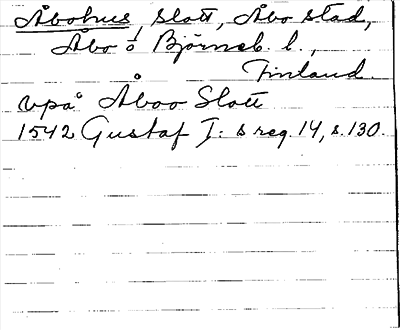 Åbohus, slott, Åbo stad,
Åbo o Björneb. l.,
Finland.
vpå Åboo Slott
1542 Gustaf I: s reg. 14, s. 130.